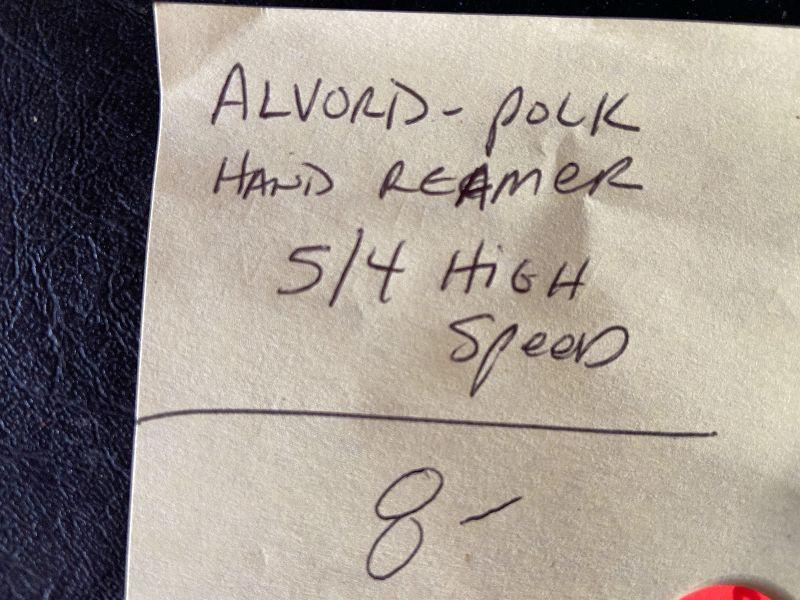 ALVORD - POLK
HAND REAMER
5/4 HIGH
SPEED
8 -